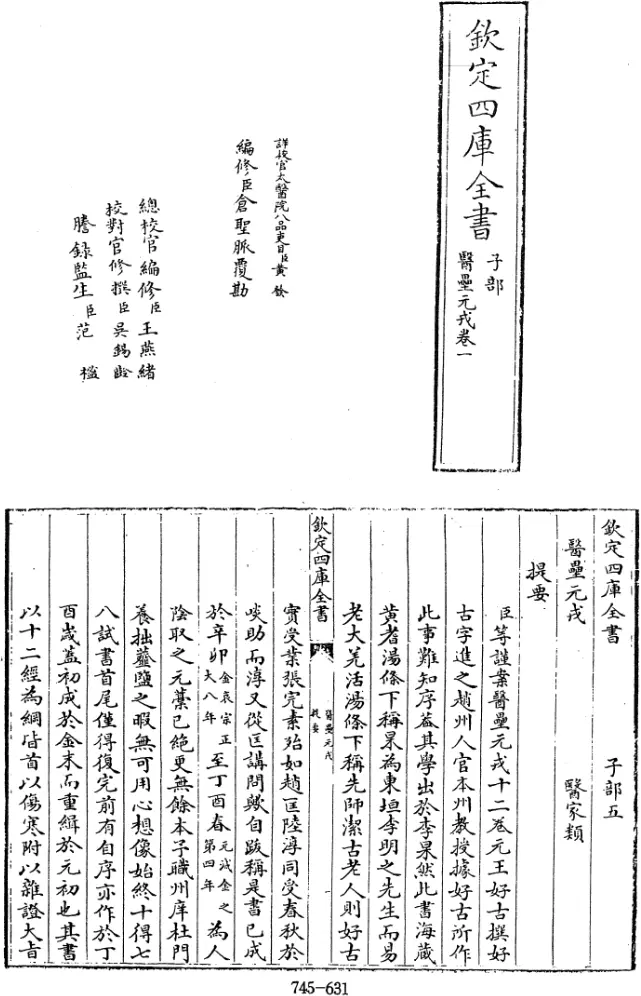 欽定四庫全書
子部
醫壘元戎卷一
詳校官太醫院八品吏目臣黃 餘
編修臣倉聖脈覆勘
總校官編修臣王燕緒
校對官修撰臣吳錫齡
謄錄監生臣范 榅
欽定四庫全書 子部五
醫壘元戎 醫家類
提要
臣等謹案醫壘元戎十二卷元王好古撰好
古字進之趙州人官本州教授據好古所作
此事難知序蓋其學出於李杲然此書海藏
黃耆湯條下稱杲為東垣李明之先生而易
老大羌活湯條下稱先師潔古老人則好古
欽定四庫全書
醫壘元戎
提要
實受業張完素殆如趙匡陸淳同受春秋於
啖助而淳又從匡講問歟自跋稱是書已成
於辛卯金哀宗正大八年至丁酉春元滅金之第四年為人
陰取之元藁已絕更無餘本予職州庠杜門
養拙虀鹽之暇無可用心想像始終十得七
八試書首尾僅得復完前有自序亦作於丁
酉歲蓋初成於金末而重緝於元初也其書
以十二經為綱皆首以傷寒附以雜證大旨
745-631